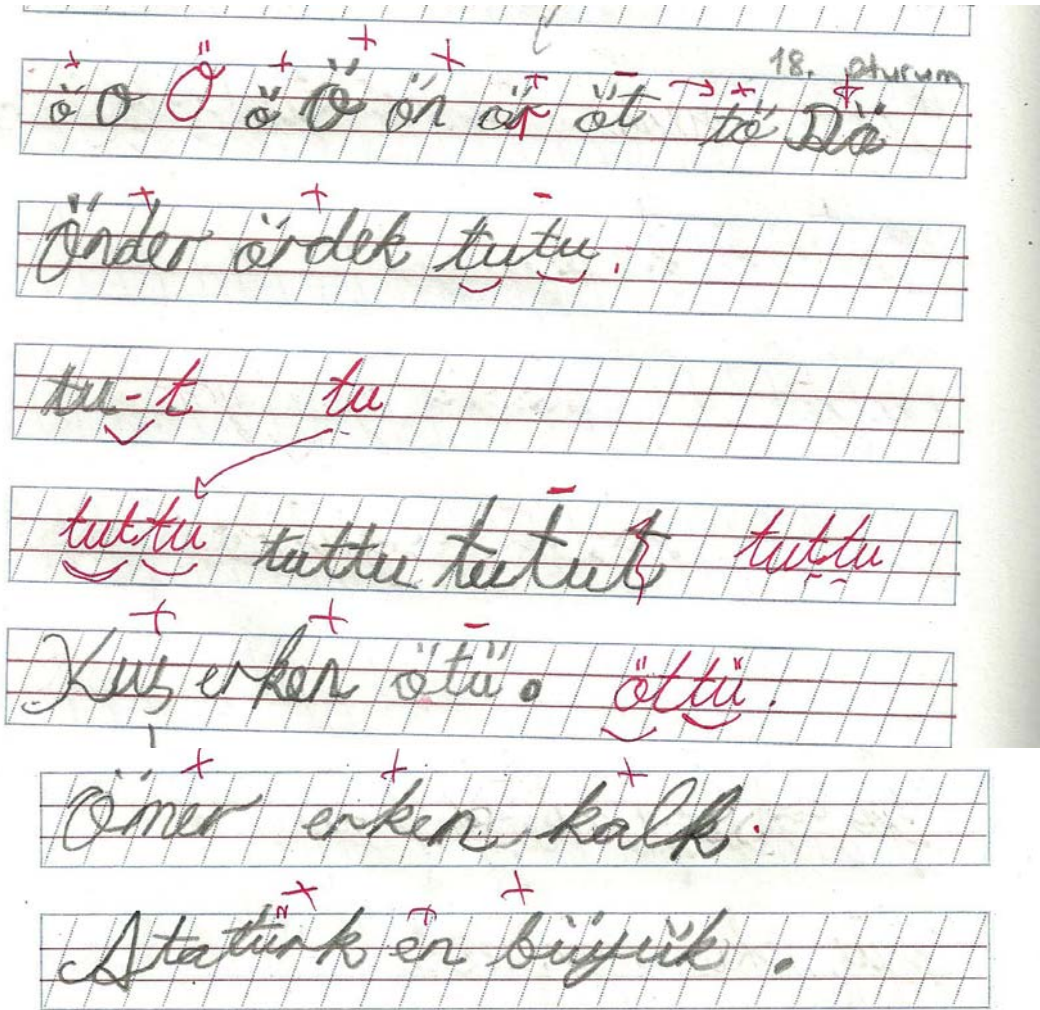 18. oturum
ö o Ö ö Ö ön ör öt → tö Dö
Önder ördek tutu.
tu-t tu
tuttu tuttu tutut tuttu
Kuş erken ötü. öttü.
Ömer erken kalk.
Atatürk en büyük.